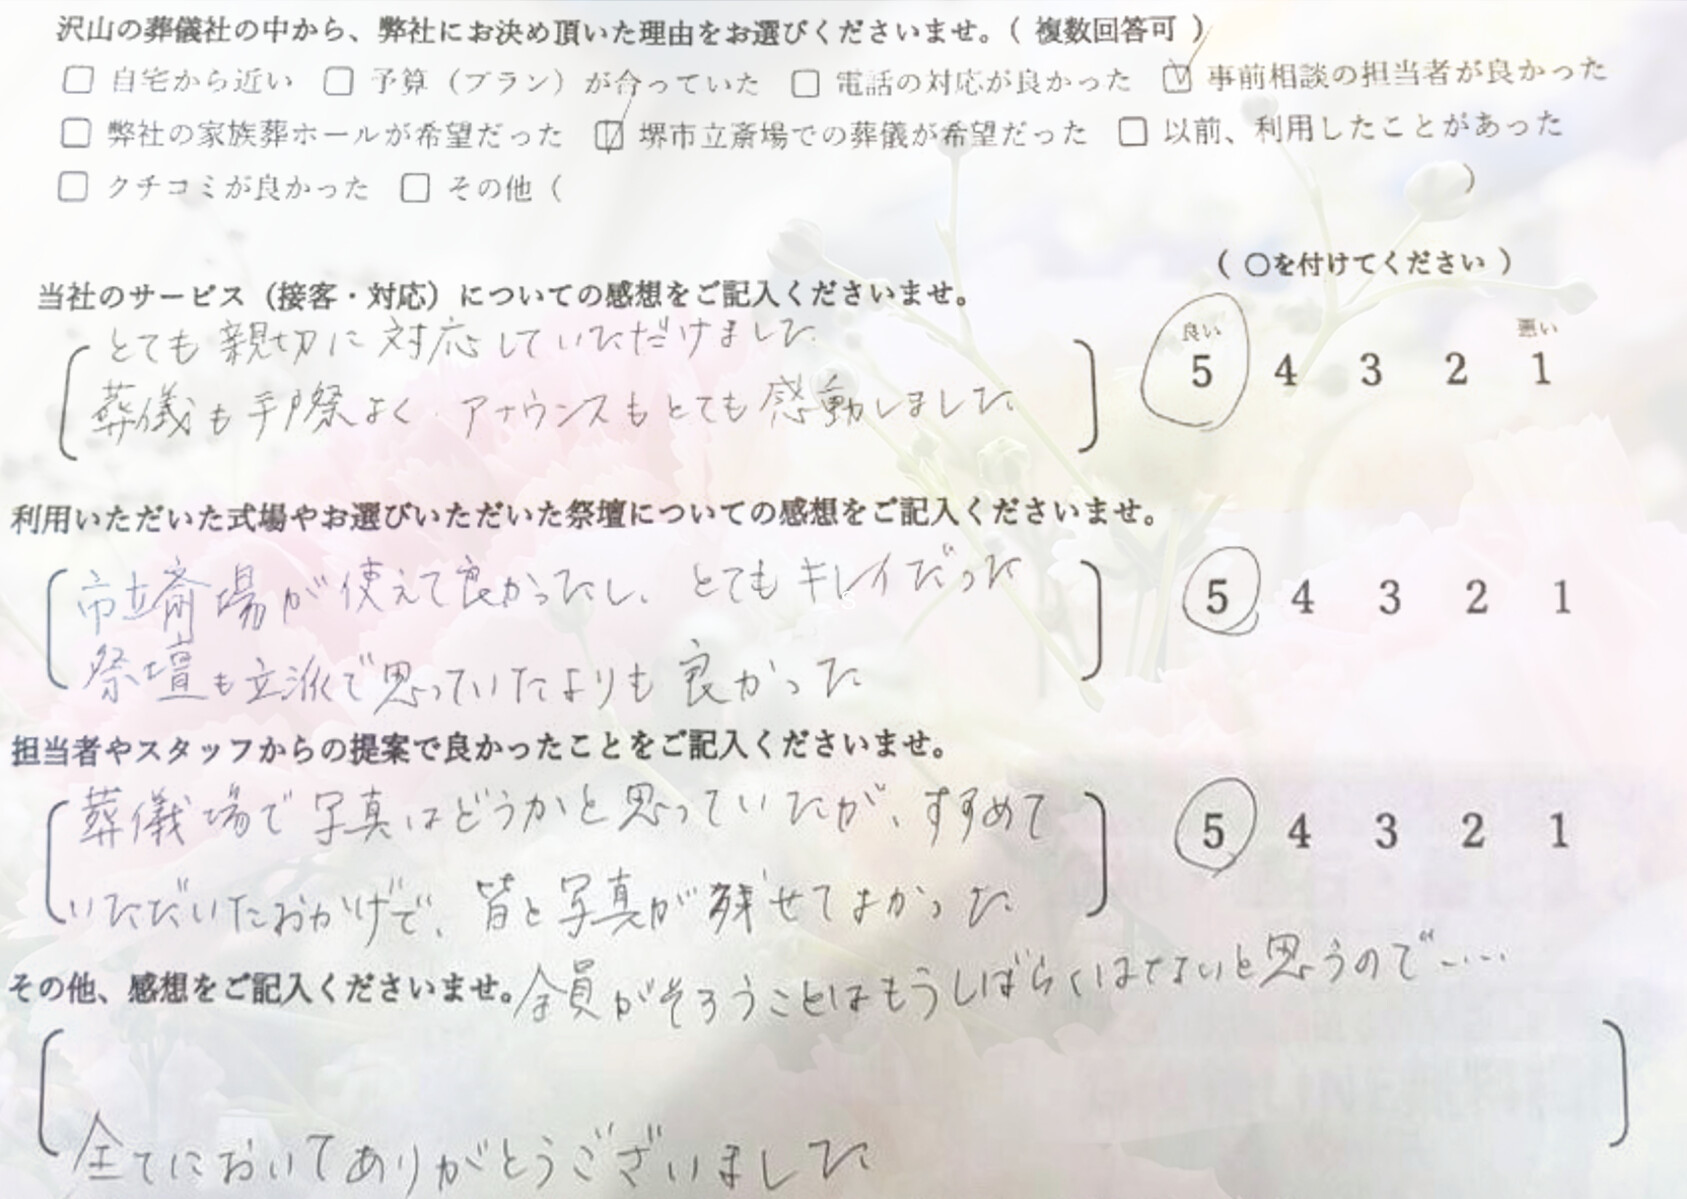 沢山の葬儀社の中から、弊社にお決め頂いた理由をお選びくださいませ。( 複数回答可 )
□ 自宅から近い □ 予算（プラン）が合っていた □ 電話の対応が良かった ☑ 事前相談の担当者が良かった
□ 弊社の家族葬ホールが希望だった ☑ 堺市立斎場での葬儀が希望だった □ 以前、利用したことがあった
□ クチコミが良かった □ その他（ ）
（ ○を付けてください ）
当社のサービス（接客・対応）についての感想をご記入くださいませ。
とても親切に対応していただけました
葬儀も手際よく、アナウンスもとても感動しました
良い 悪い
5 4 3 2 1
利用いただいた式場やお選びいただいた祭壇についての感想をご記入くださいませ。
市立斎場が使えて良かったし、とてもキレイだった
祭壇も立派で思っていたよりも良かった
5 4 3 2 1
担当者やスタッフからの提案で良かったことをご記入くださいませ。
葬儀場で写真はどうかと思っていたが、すすめて
いただいたおかげで、皆と写真が残せてよかった
5 4 3 2 1
全員がそろうことはもうしばらくはないと思うので……
その他、感想をご記入くださいませ。
全てにおいてありがとうございました